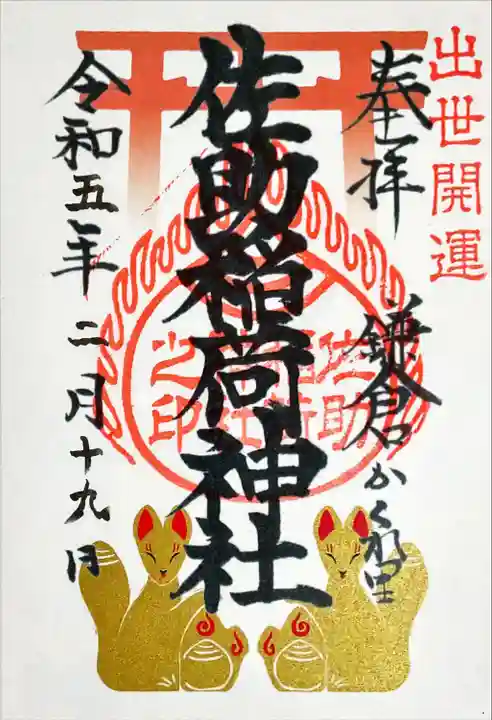 出世開運
奉拝
鎌倉かくれ里
佐助稲荷神社
佐助稲荷神社之印
令和五年二月十九日